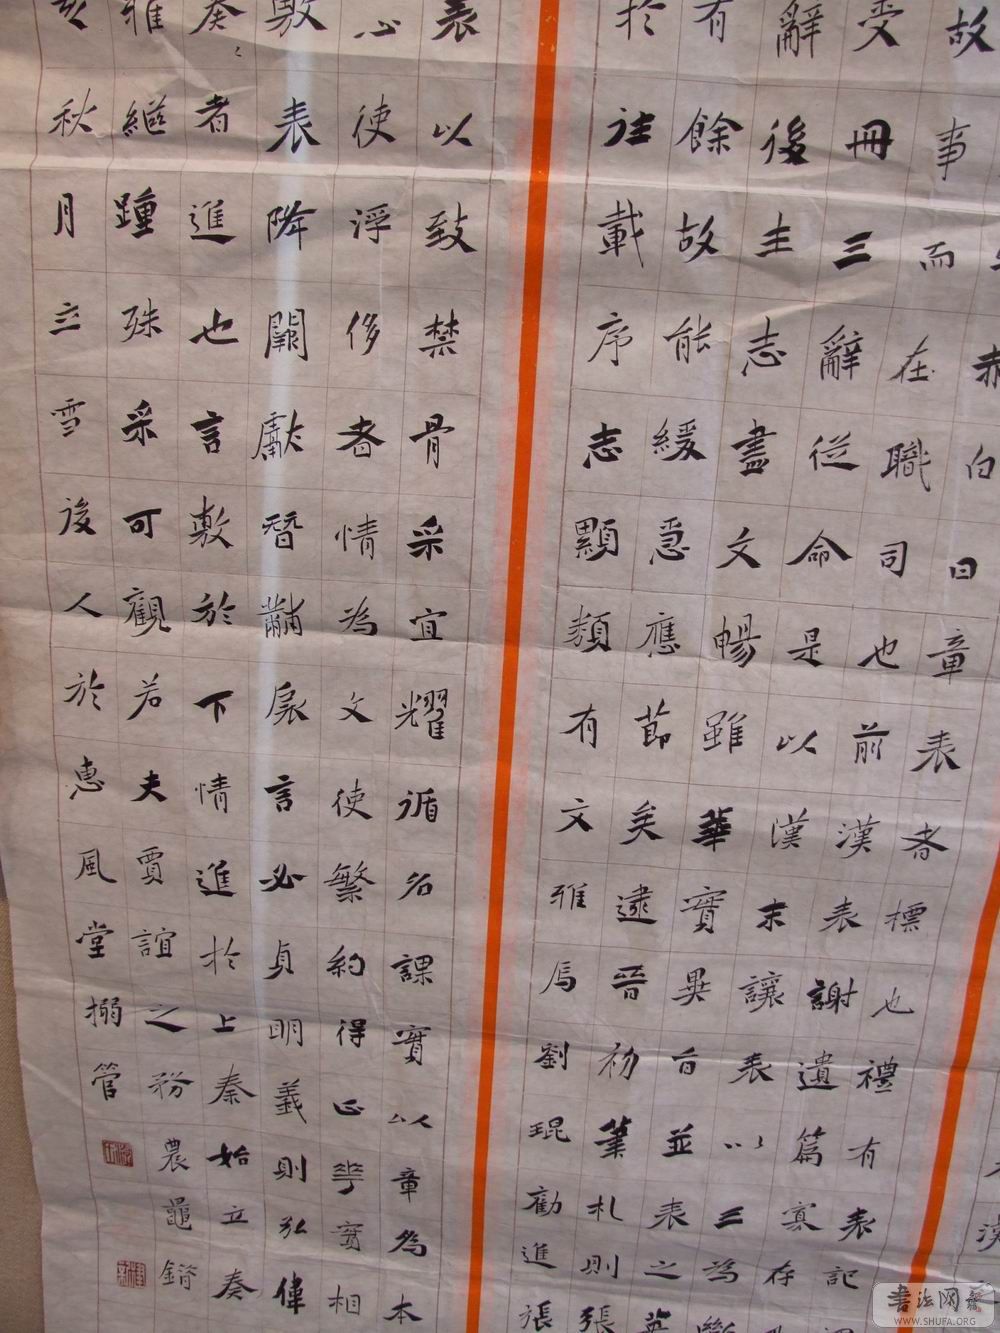 赤白曰章表者標也禮有表記
故事而在職司也前漢表謝遺篇寡存
受冊三辭從命是以漢末讓表以三為斷
辭後主志盡文暢雖華實異旨並表之英
有餘故能緩急應節矣逮晉初筆札則張
於注載序志顯類有文雅焉劉琨勸進張
表以致禁骨采宜耀循名課實以章為本
心使浮侈者情為文使繁約得正華實相
敷表降闕獻替黼扆言必貞明義則弘偉
奏々者進也言敷於下情進於上秦始立奏
雅繼踵殊采可觀若夫賈誼之務農鼂錯
秋月立雪後人於惠風堂搦管
书法网
WWW.SHUFA.ORG